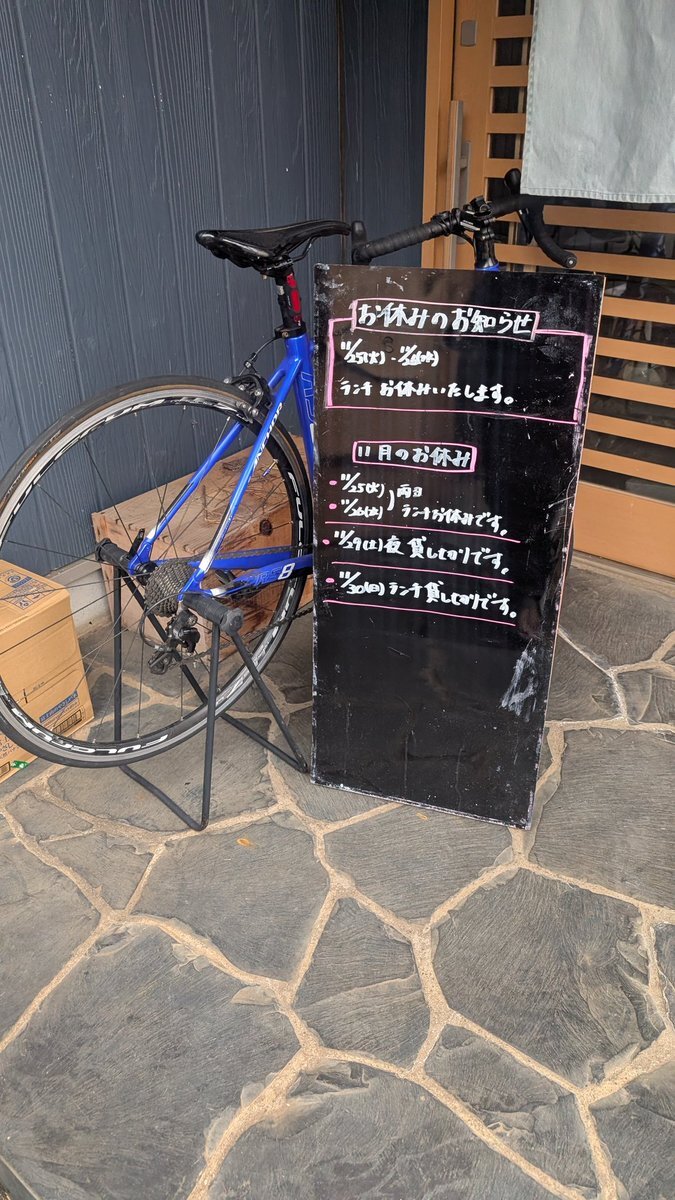 お休みのお知らせ
11/25(火)-11/26(水)
ランチ お休みいたします。
11月のお休み
11/25(火)
11/26(水)
両日
ランチお休みです。
11/29(土)夜 貸し切りです。
11/30(日)ランチ貸し切りです。
FULCRUM